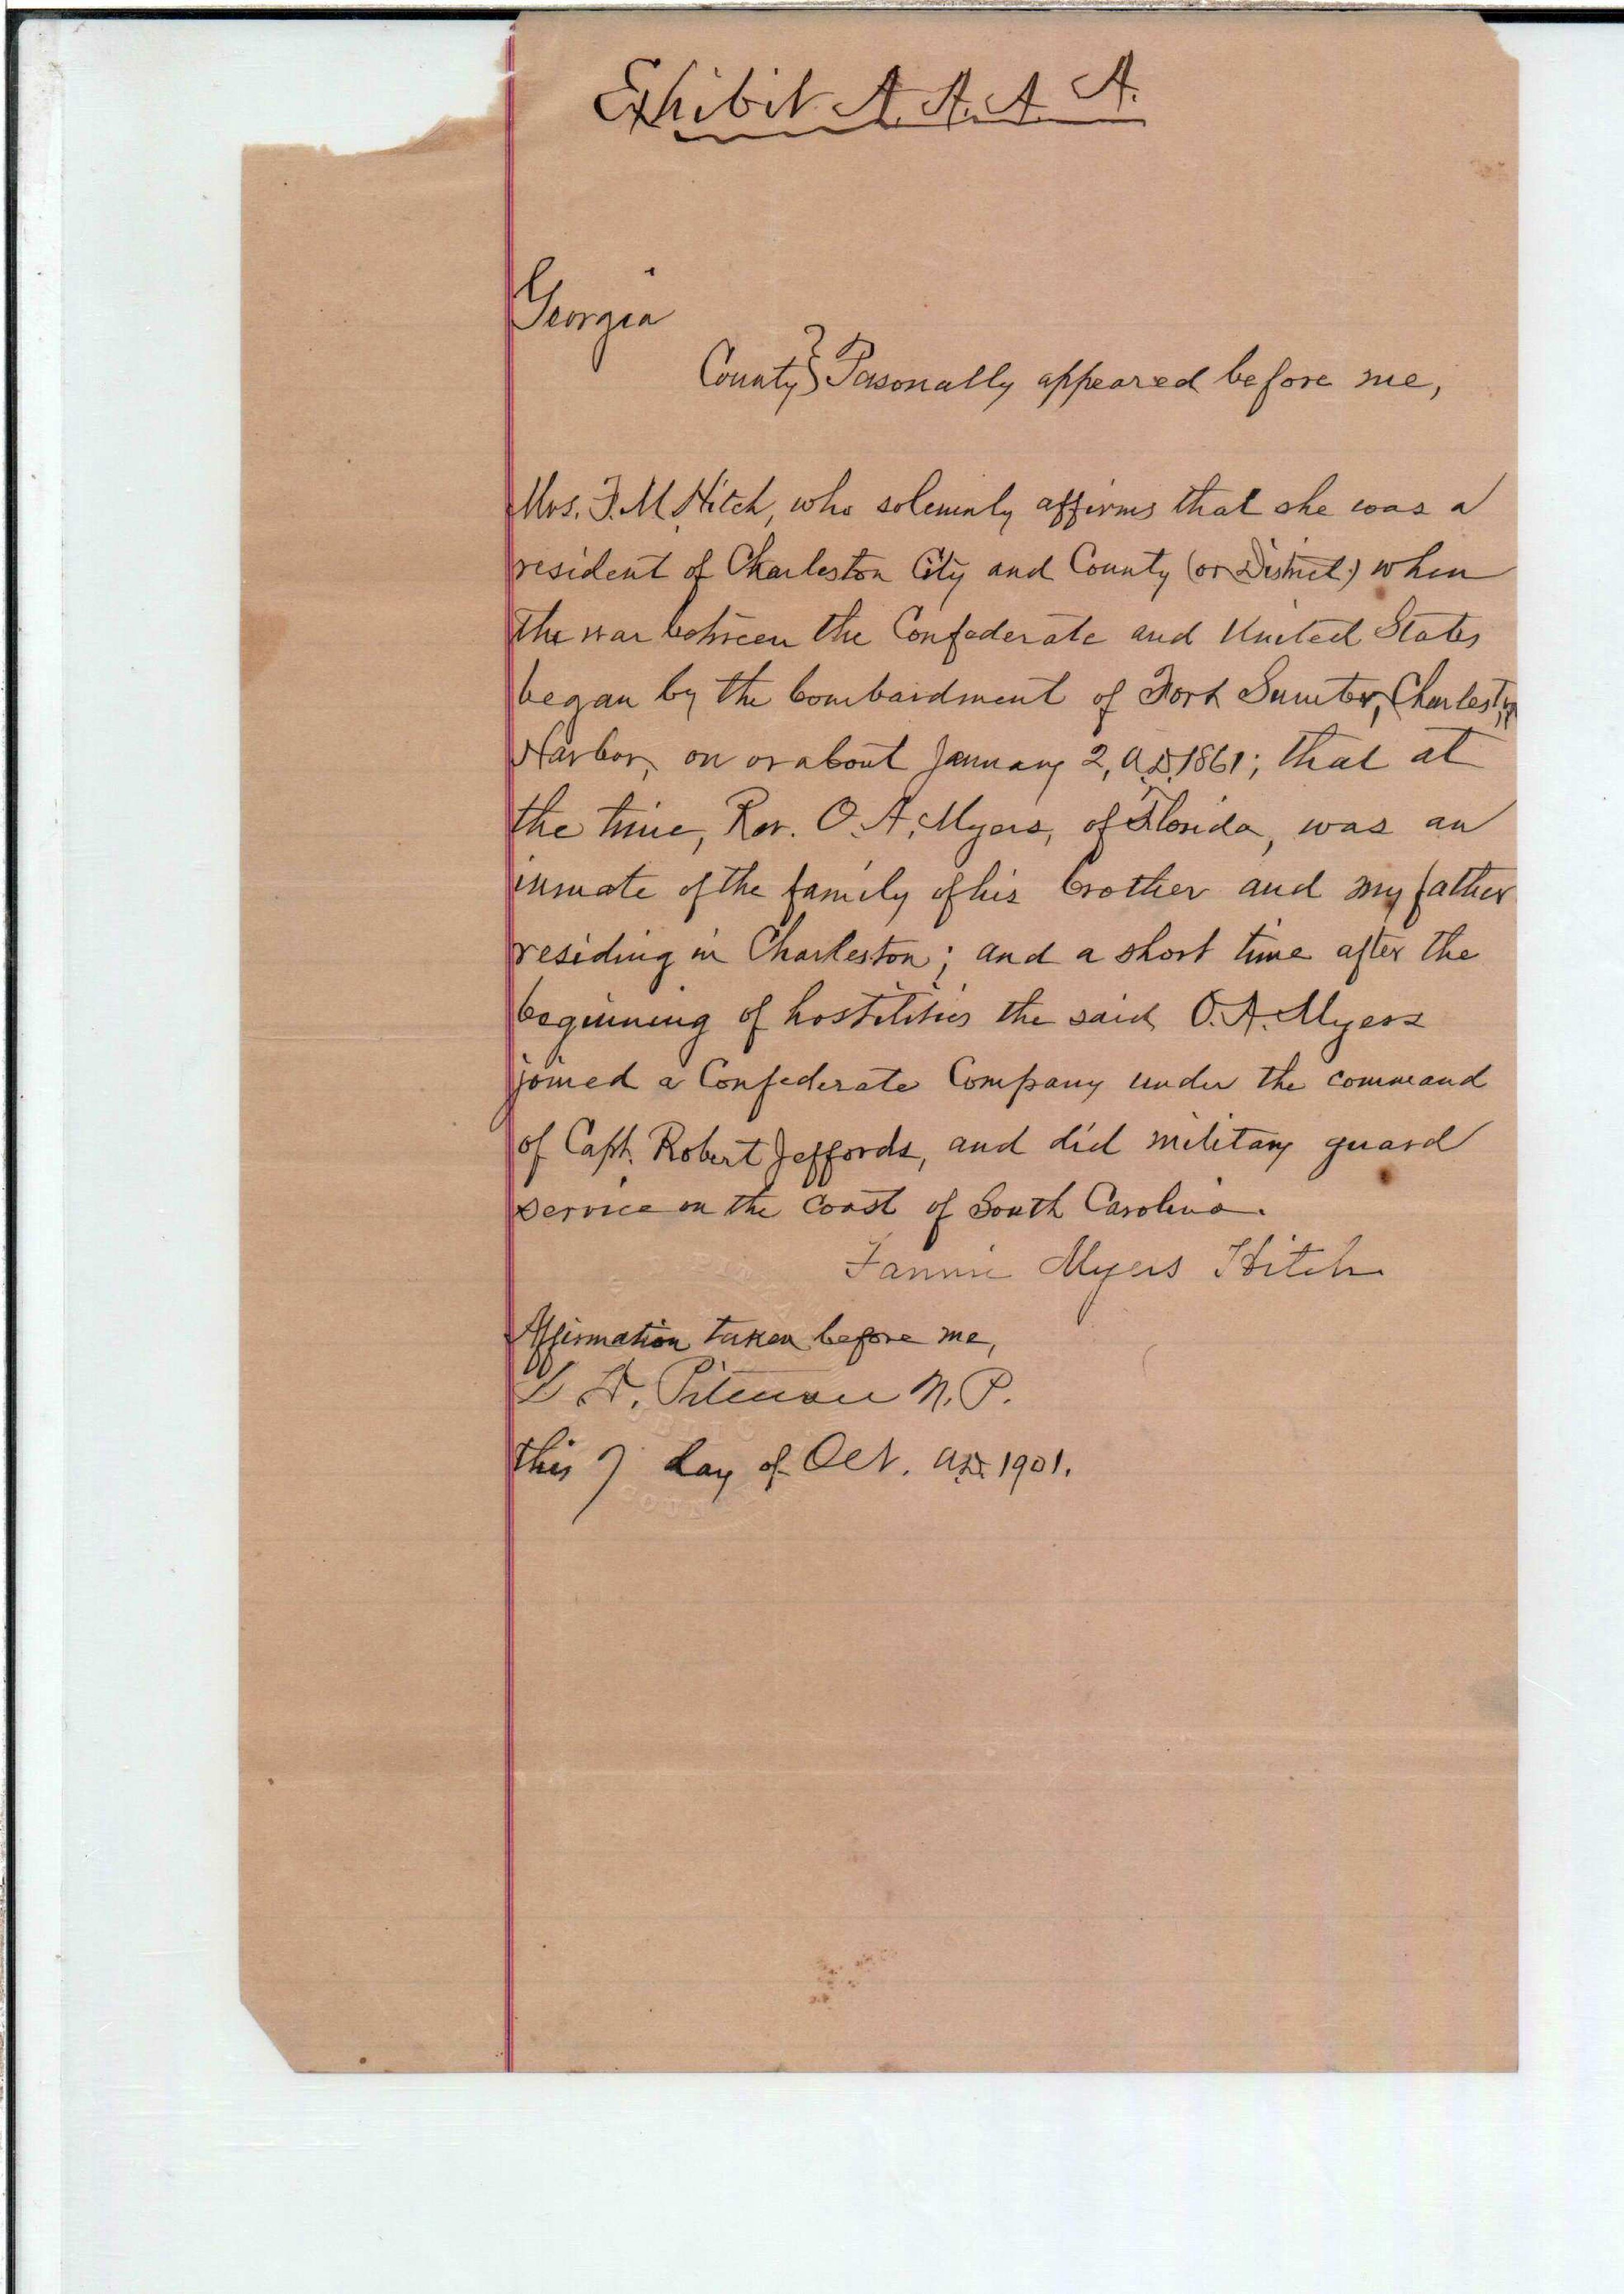 Exhibit A. A. A. A.
Georgia
County } Pasonally appeared before me,
Mrs. F. M Hitch, who solemnly affirms that she was a
resident of Charleston City and County (or District) when
the war between the Confederate and United States
began by the bombardment of Fort Sumter, Charleston
Harbor, on or about January 2, A.D. 1861; that at
the time, Rev. O. A. Myers, of Florida, was an
inmate of the family of his brother and my father
residing in Charleston; and a short time after the
beginning of hostilities the said O. A. Myers
joined a Confederate Company under the command
of Capt. Robert Jeffords, and did military guard
service on the coast of South Carolina.
Fannie Myers Hitch
Affirmation taken before me,
N. P.
this 7 day of Oct. A.D. 1901.